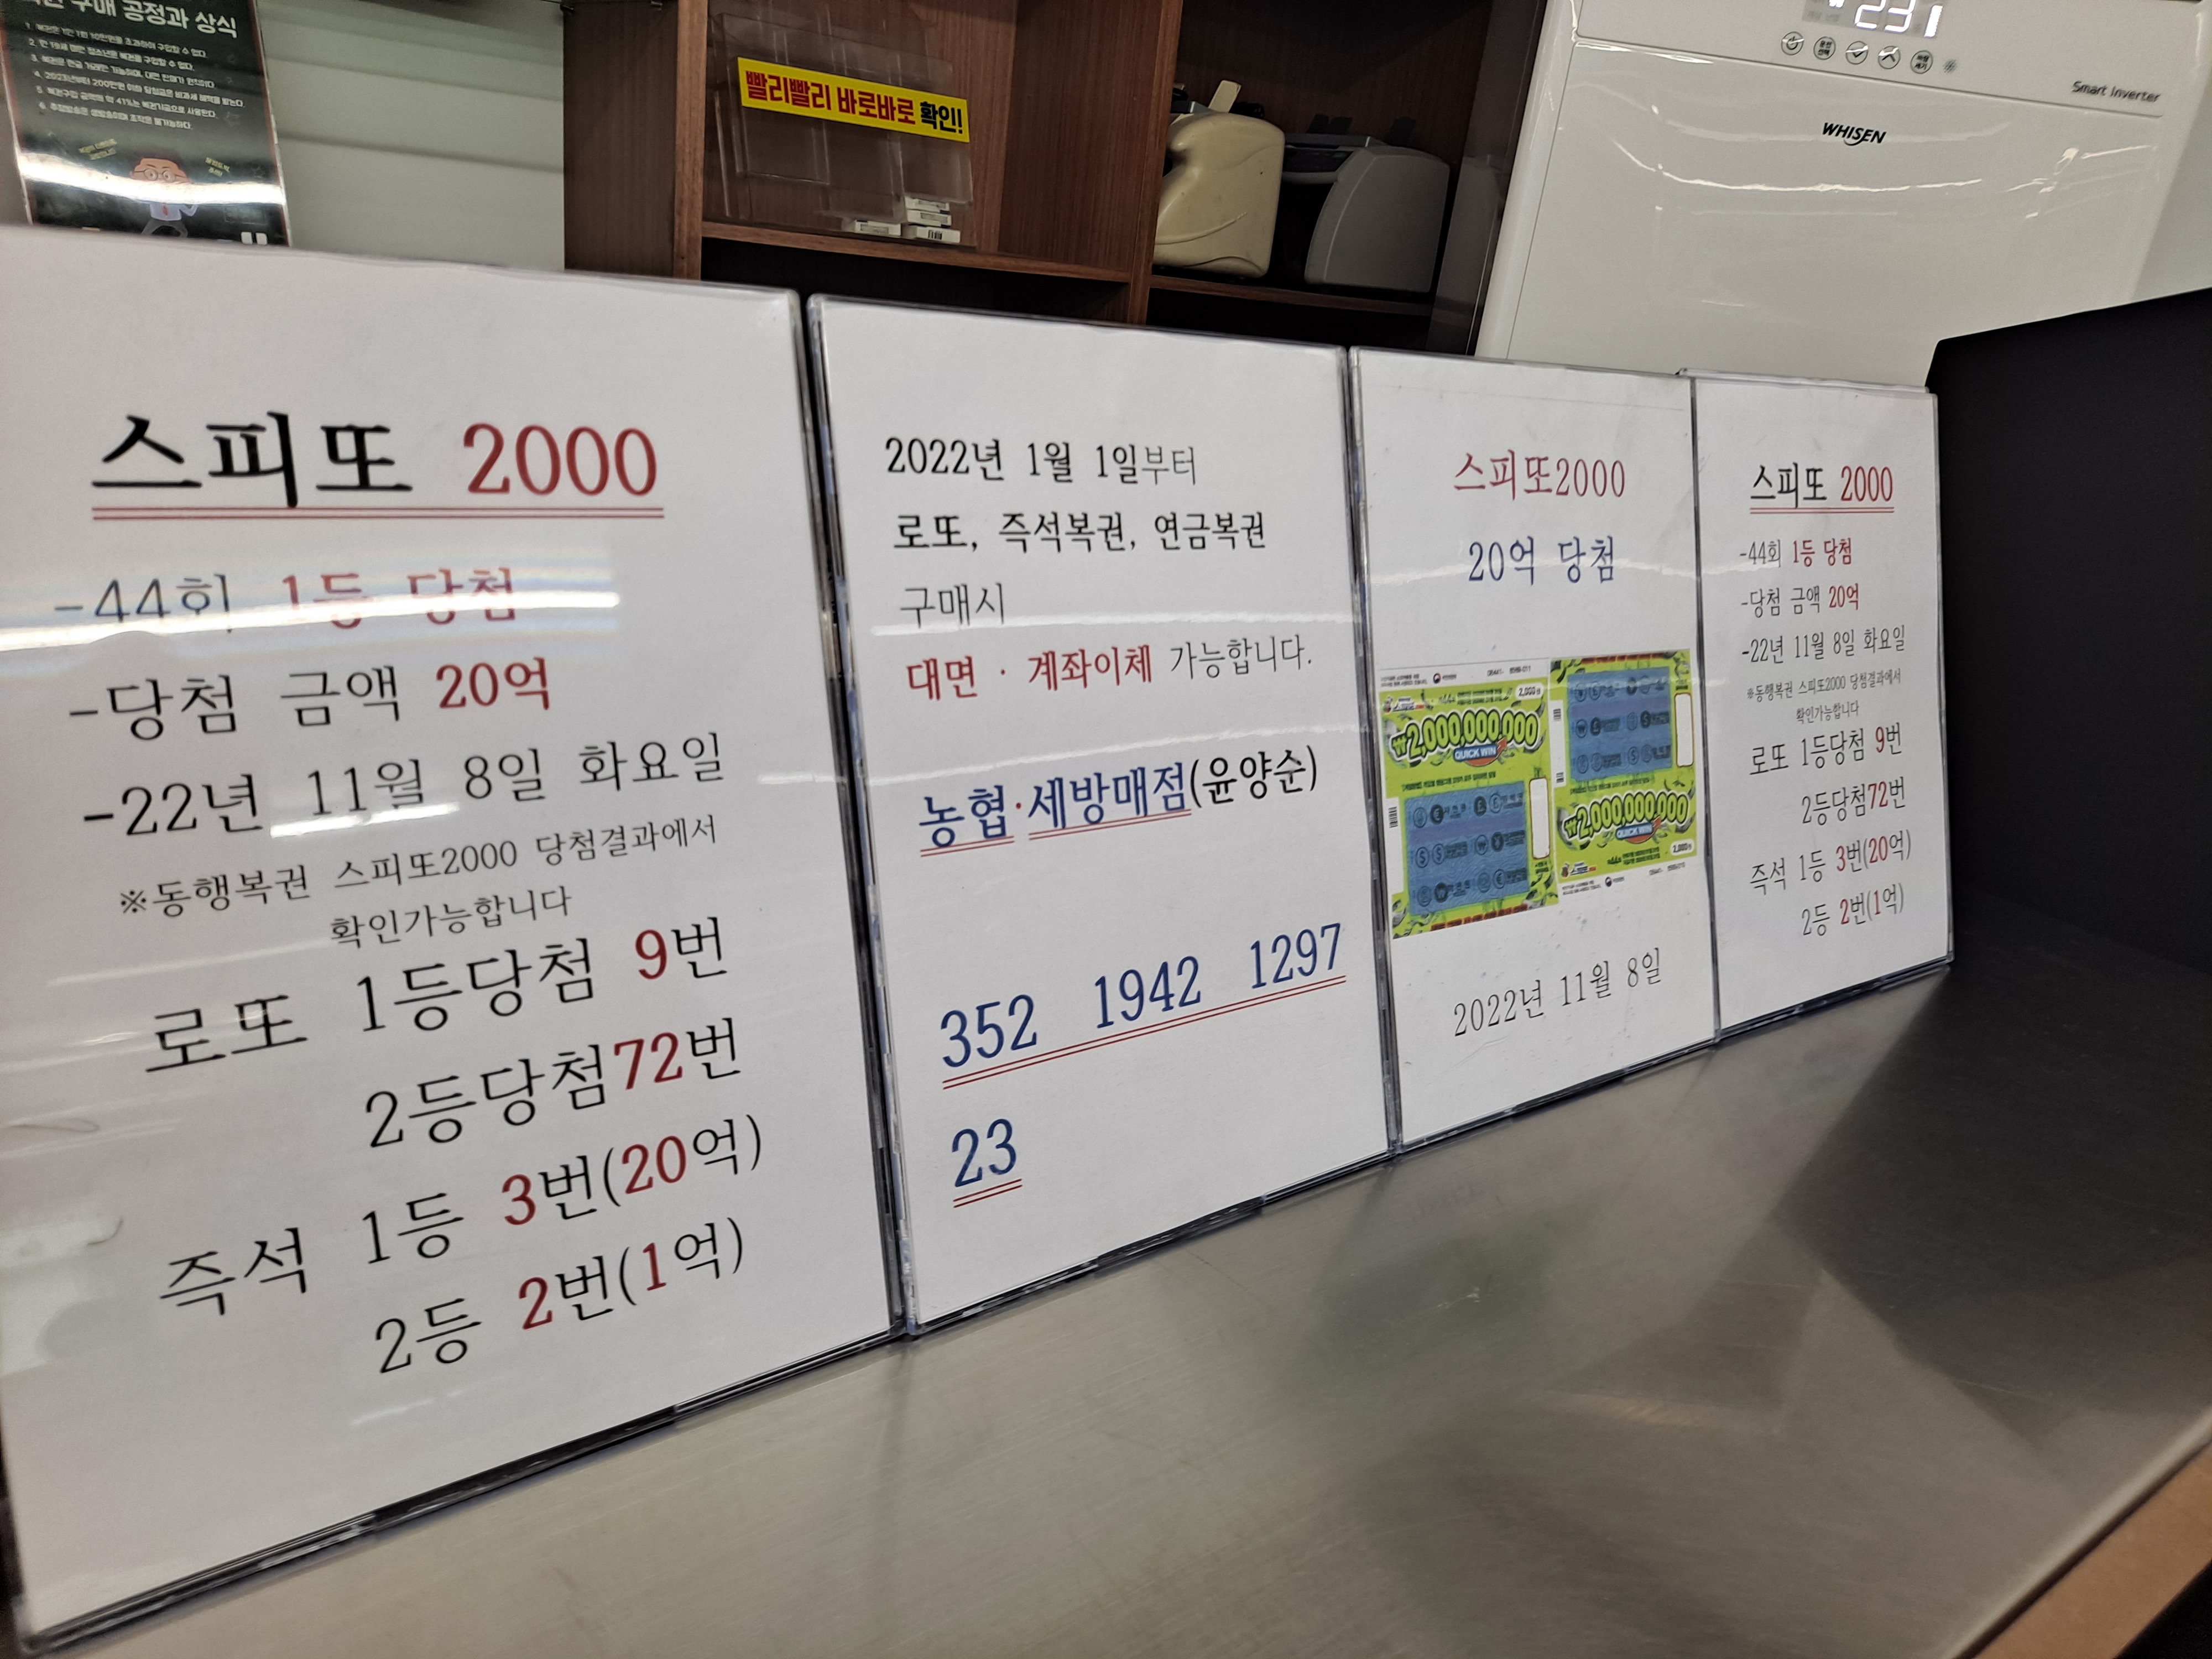 구매 공정과 상식
빨리빨리 바로바로 확인!
231
Smart Inverter
WHISEN
스피또 2000
-44회 1등 당첨
-당첨 금액 20억
-22년 11월 8일 화요일
※동행복권 스피또2000 당첨결과에서
확인가능합니다
로또 1등당첨 9번
2등당첨72번
즉석 1등 3번(20억)
2등 2번(1억)
2022년 1월 1일부터
로또, 즉석복권, 연금복권
구매시
대면 · 계좌이체 가능합니다.
농협·세방매점(윤양순)
352 1942 1297
23
스피또2000
20억 당첨
₩2,000,000,000
QUICK WIN
₩2,000,000,000
QUICK WIN
2022년 11월 8일
스피또 2000
-44회 1등 당첨
-당첨 금액 20억
-22년 11월 8일 화요일
※동행복권 스피또2000 당첨결과에서
확인가능합니다
로또 1등당첨 9번
2등당첨72번
즉석 1등 3번(20억)
2등 2번(1억)